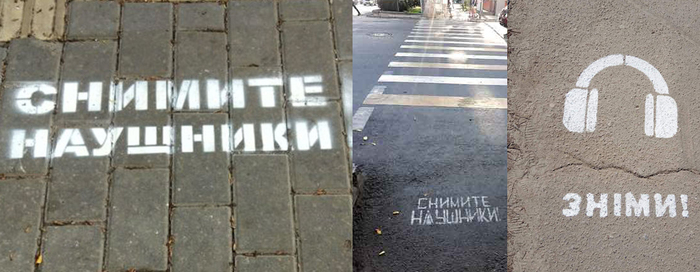 СНИМИТЕ
НАУШНИКИ
СНИМИТЕ
НАУШНИКИ
ЗНІМИ!